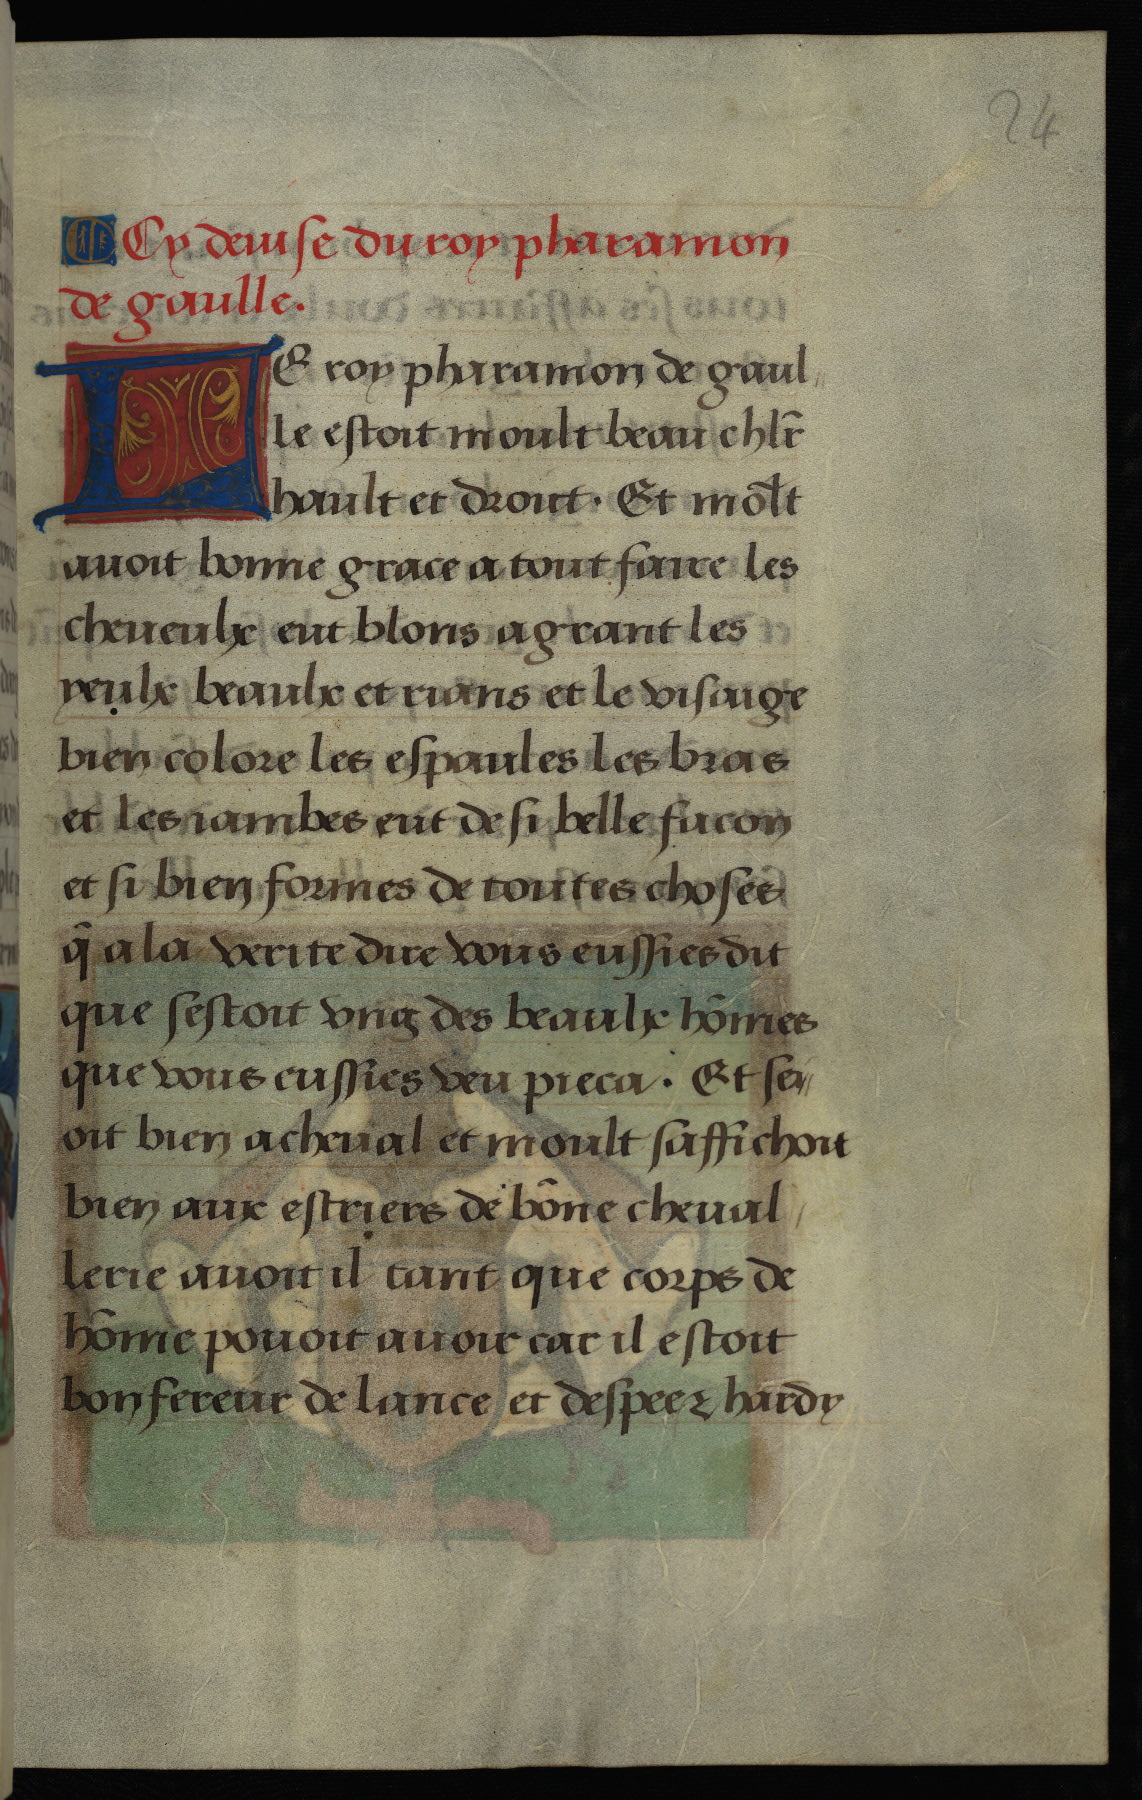 24
Cy deuise du roy pharamon
de gaulle.
LE roy pharamon de gaul
le estoit moult beau chlr̄
hault et droit. Et mol̄t
auoit bonne grace a tout faire les
cheueulx eut blons a grant les
yeulx beaulx et rians et le visaige
bien colore les espaules les bras
et les iambes eut de si belle facon
et si bien formes de toutes choses
q̄ a la verite dire vous eussies dit
que sestoit vng des beaulx hōmes
que vous eussies veu pieca. Et se
oit bien a cheual et moult saffichoit
bien aux estriers de bōne cheual
lerie auoit il tant que corps de
hōme pouoit auoir car il estoit
bon fereur de lance et despeez hardy